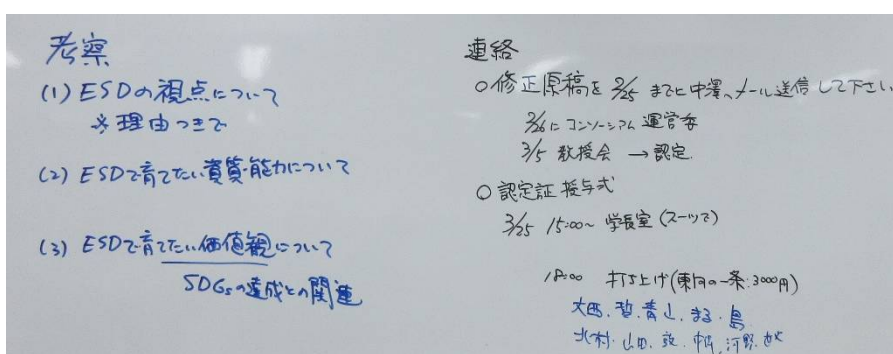 考察
(1) ESDの視点について
※理由つきで
(2) ESDで育てたい資質・能力について
(3) ESDで育てたい価値観について
SDGsの達成との関連
連絡
○修正原稿を 2/25 までに中澤へメール送信して下さい
2/26 に コンソーシアム 運営委
3/5 教授会 → 認定
○認定証授与式
3/25 15:00〜 学長室 (スーツで)
18:00 打ち上げ (東向の一条:3000円)
大西.哲.青山.まる.島
北村.山田.河野.